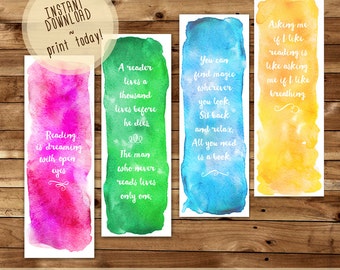 INSTANT
DOWNLOAD
~
print today!
Reading
is dreaming
with open
eyes
A reader
lives a
thousand
lives before
he dies.
The man
who never
reads lives
only one.
You can
find magic
wherever
you look.
Sit back
and relax.
All you need
is a book.
Asking me
if I like
reading is
like asking
me if I like
breathing.